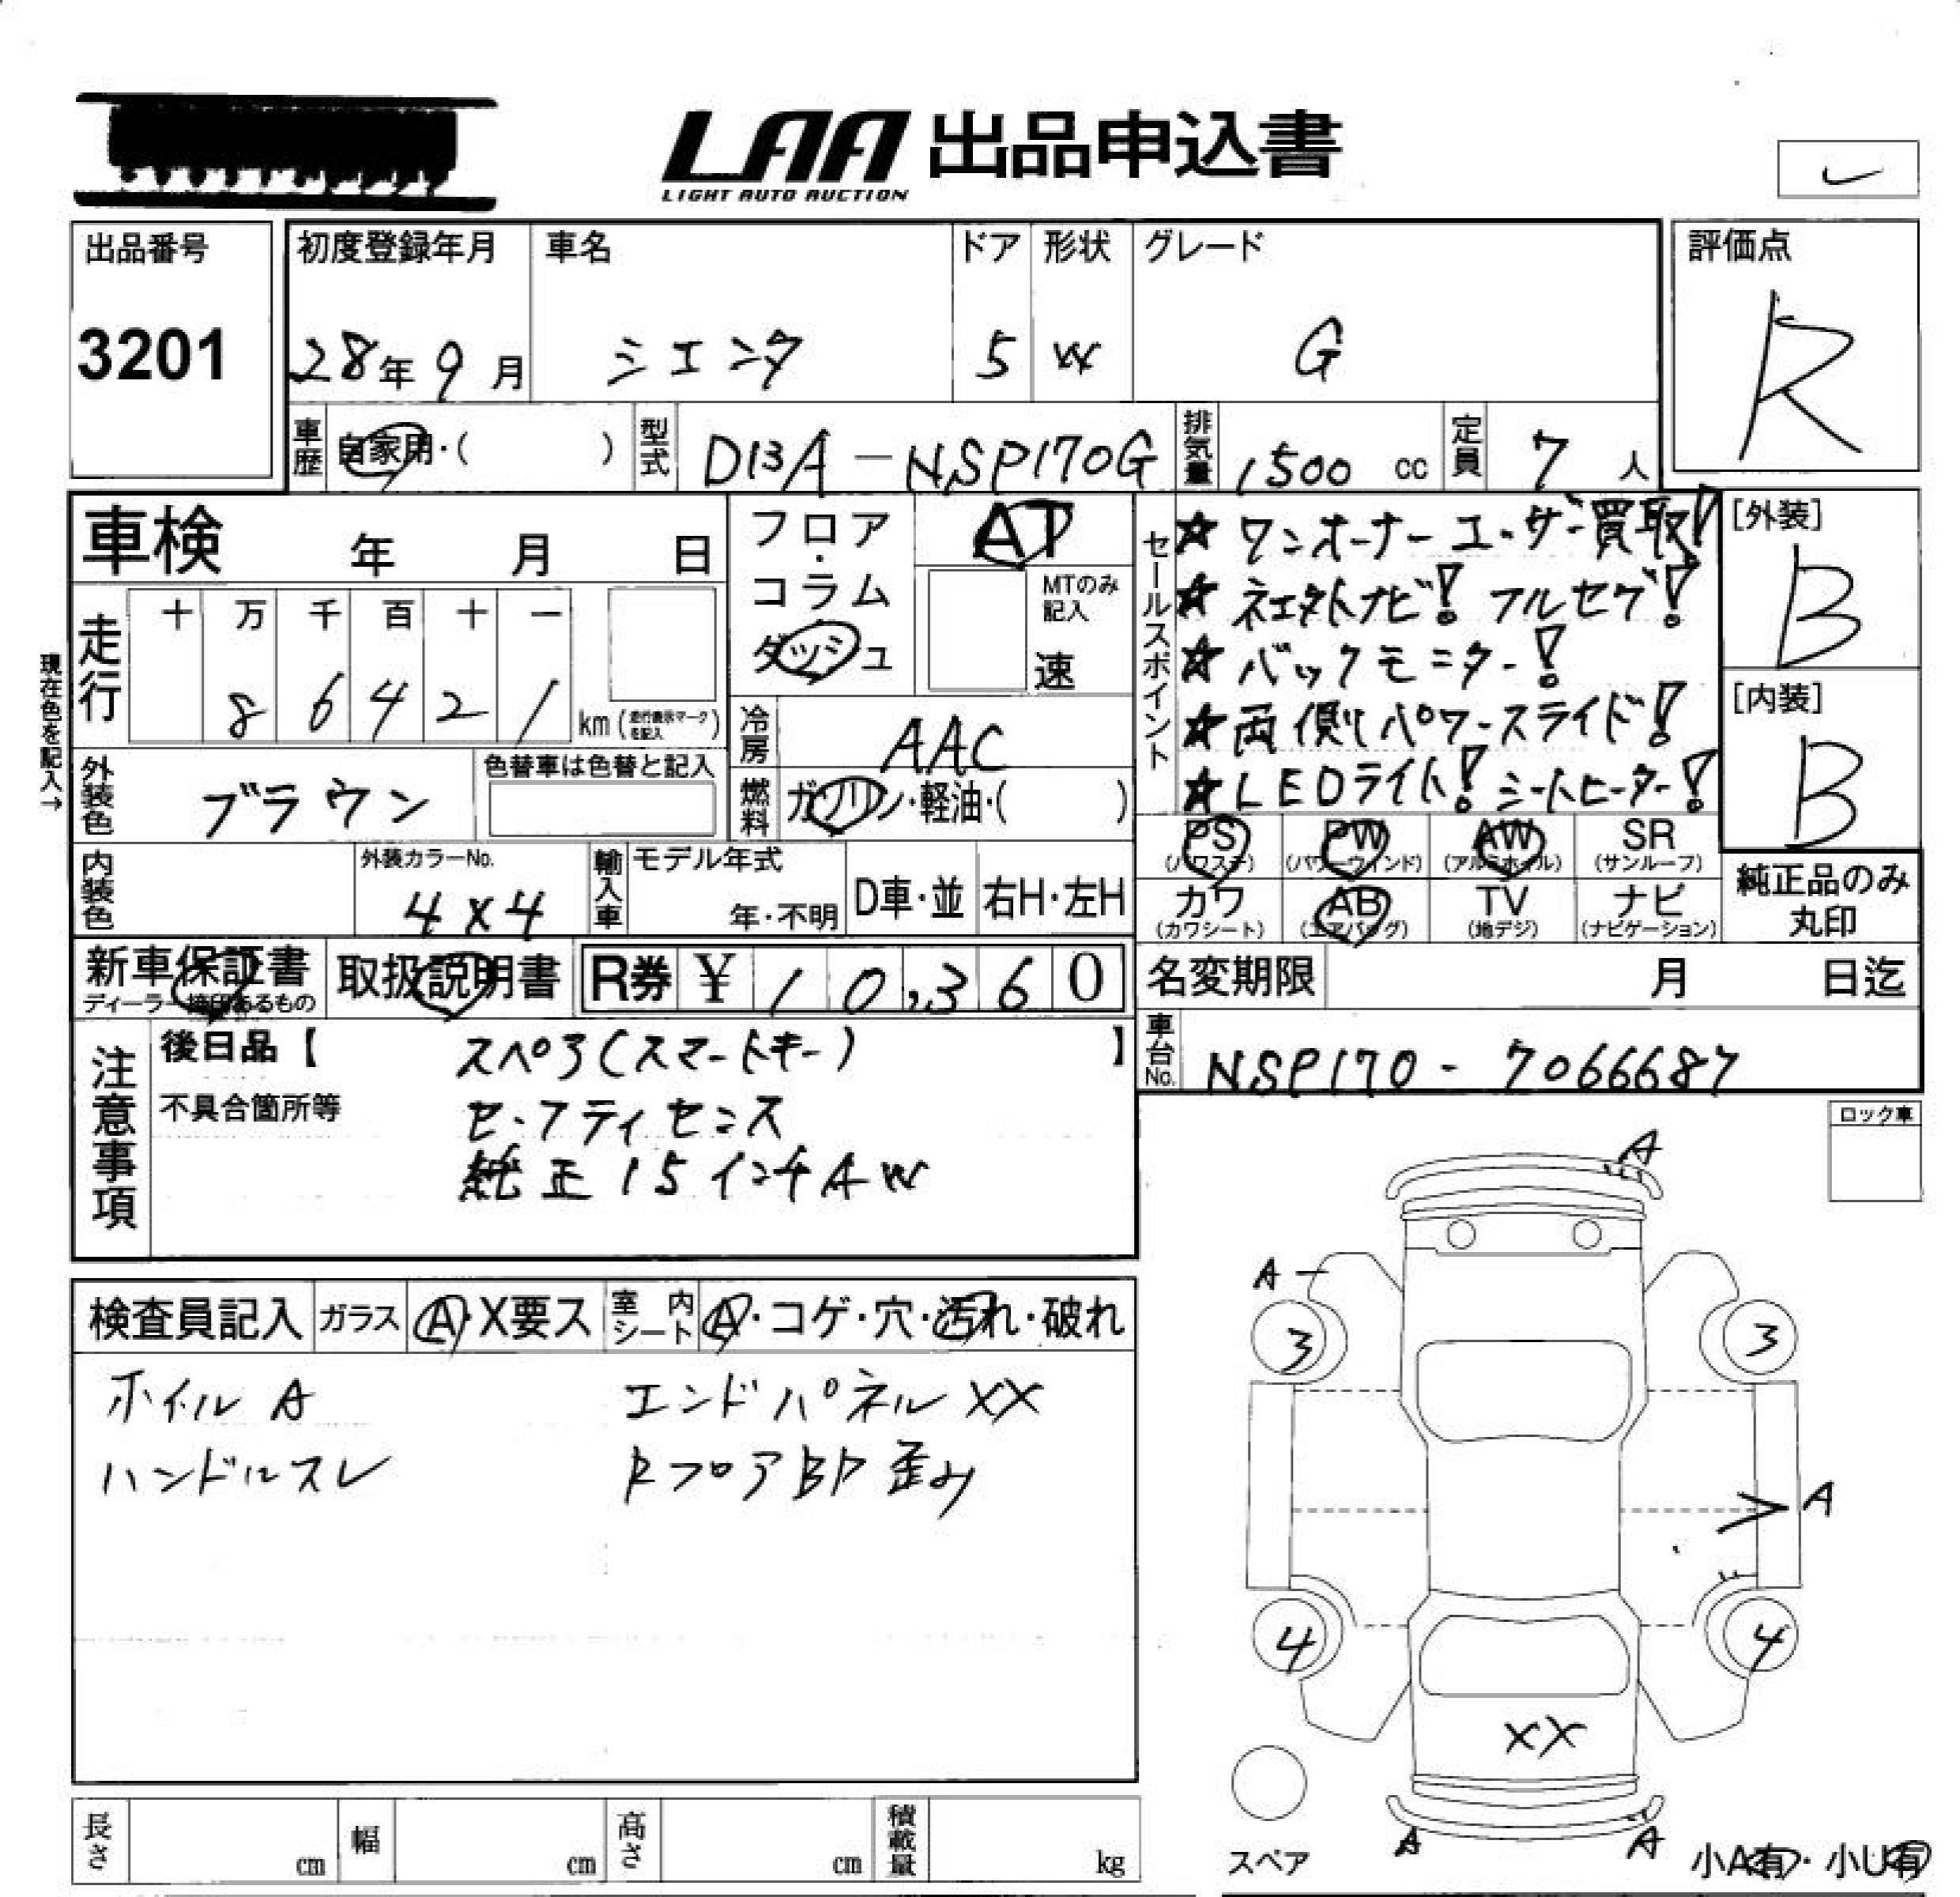 LAA 出品申込書
LIGHT AUTO AUCTION
出品番号
3201
初度登録年月
28年9月
車名
シエンタ
ドア
5
形状
W
グレード
G
評価点
R
車歴
自家用・( )
型式
DBA-NSP170G
排気量
1500 cc
定員
7人
車検 年 月 日
フロア・コラム
ダッシュ
AT
MTのみ記入
速
セールスポイント
☆ワンオーナーユーザー買取!
☆ネエタトナビ! フルセグ!
☆バックモニター!
☆両側パワースライド!
☆LEDライト! シートヒーター!
[外装]
B
[内装]
B
現在色を記入→
走行
十 万 千 百 十 一
8 6 4 2 1 km (走行表示マークを記入)
冷房
AAC
外装色
ブラウン
色替車は色替と記入
燃料
ガソリン・軽油・( )
PS
(パワステ)
PW
(パワーウィンド)
AW
(アルミホイル)
SR
(サンルーフ)
カワ
(カワシート)
AB
(エアバッグ)
TV
(地デジ)
ナビ
(ナビゲーション)
純正品のみ
丸印
内装色
外装カラーNo.
4X4
輸入車
モデル年式
年・不明
D車・並
右H・左H
新車保証書
ディーラー捺印あるもの
取扱説明書
R券 ¥ 10,360
名変期限 月 日迄
車台No.
NSP170-7066687
注意事項
後日品【 スペア(スマートキー) 】
不具合箇所等
セーフティセンス
純正15インチAW
ロック車
検査員記入
ガラス
A・X要ス
室内シート
A・コゲ・穴・汚れ・破れ
ホイル A
エンドパネル XX
ハンドルスレ
RフロアBP歪み
A
A
3
3
A
4
4
XX
A
A
スペア
小A有・小U有
長さ cm
幅 cm
高さ cm
積載量 kg